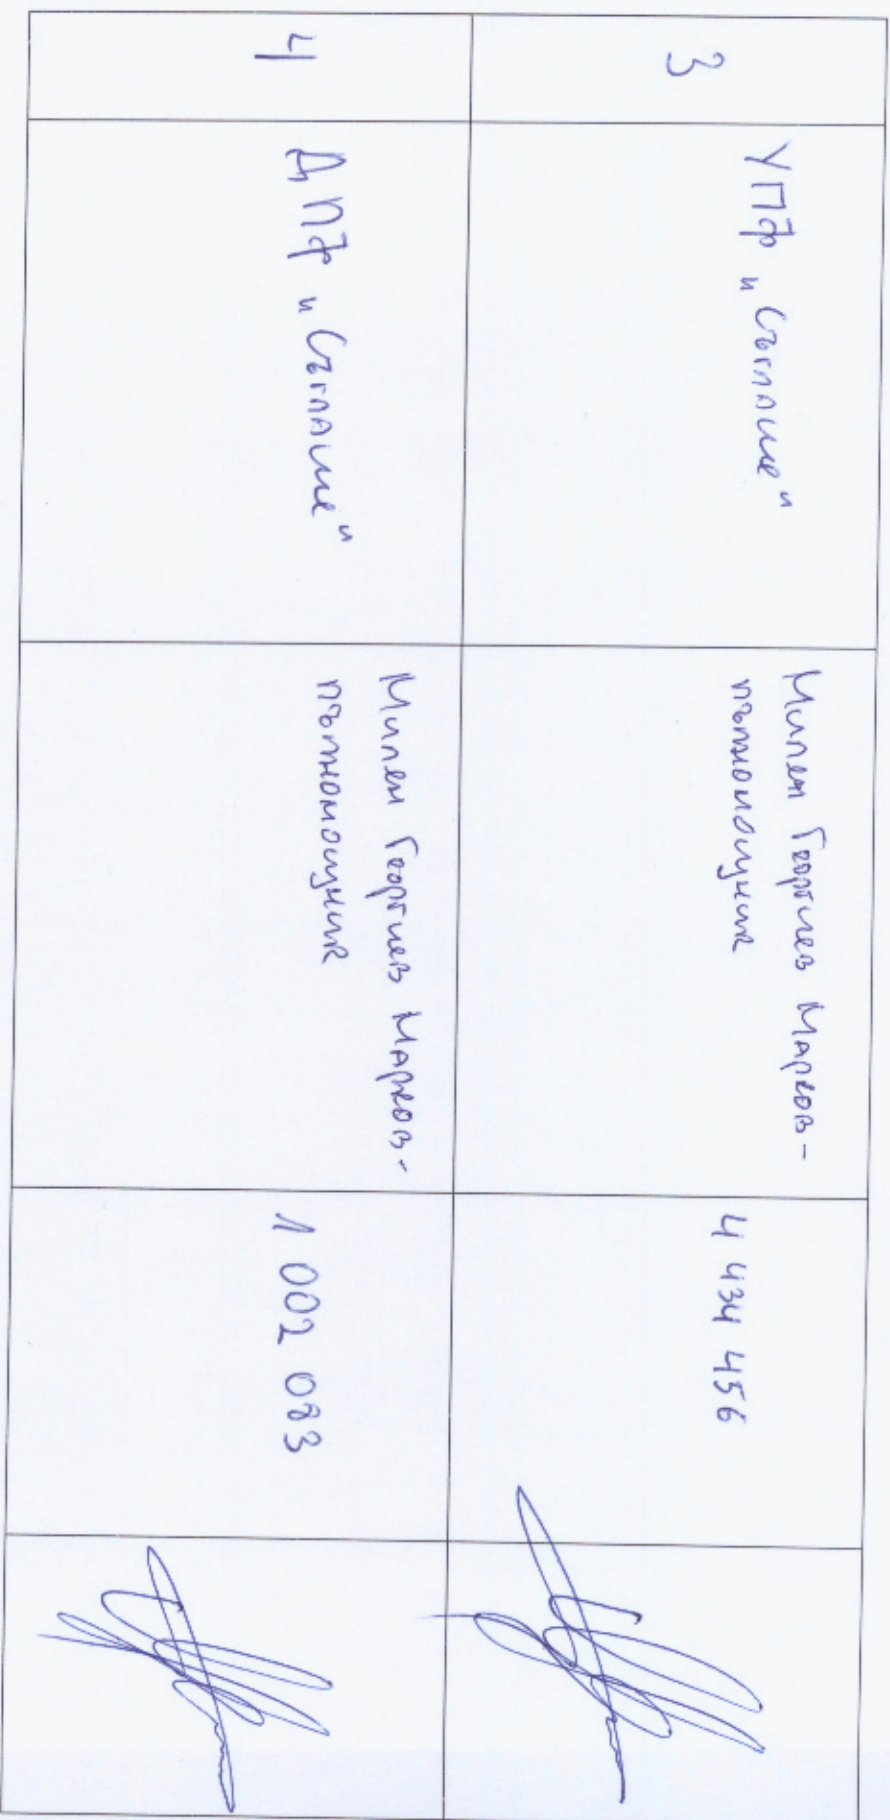 3
УПФ „Съгласие"
Милен Георгиев Марков -
пълномощник
4 434 456
4
ДПФ „Съгласие"
Милен Георгиев Марков -
пълномощник
1 002 083